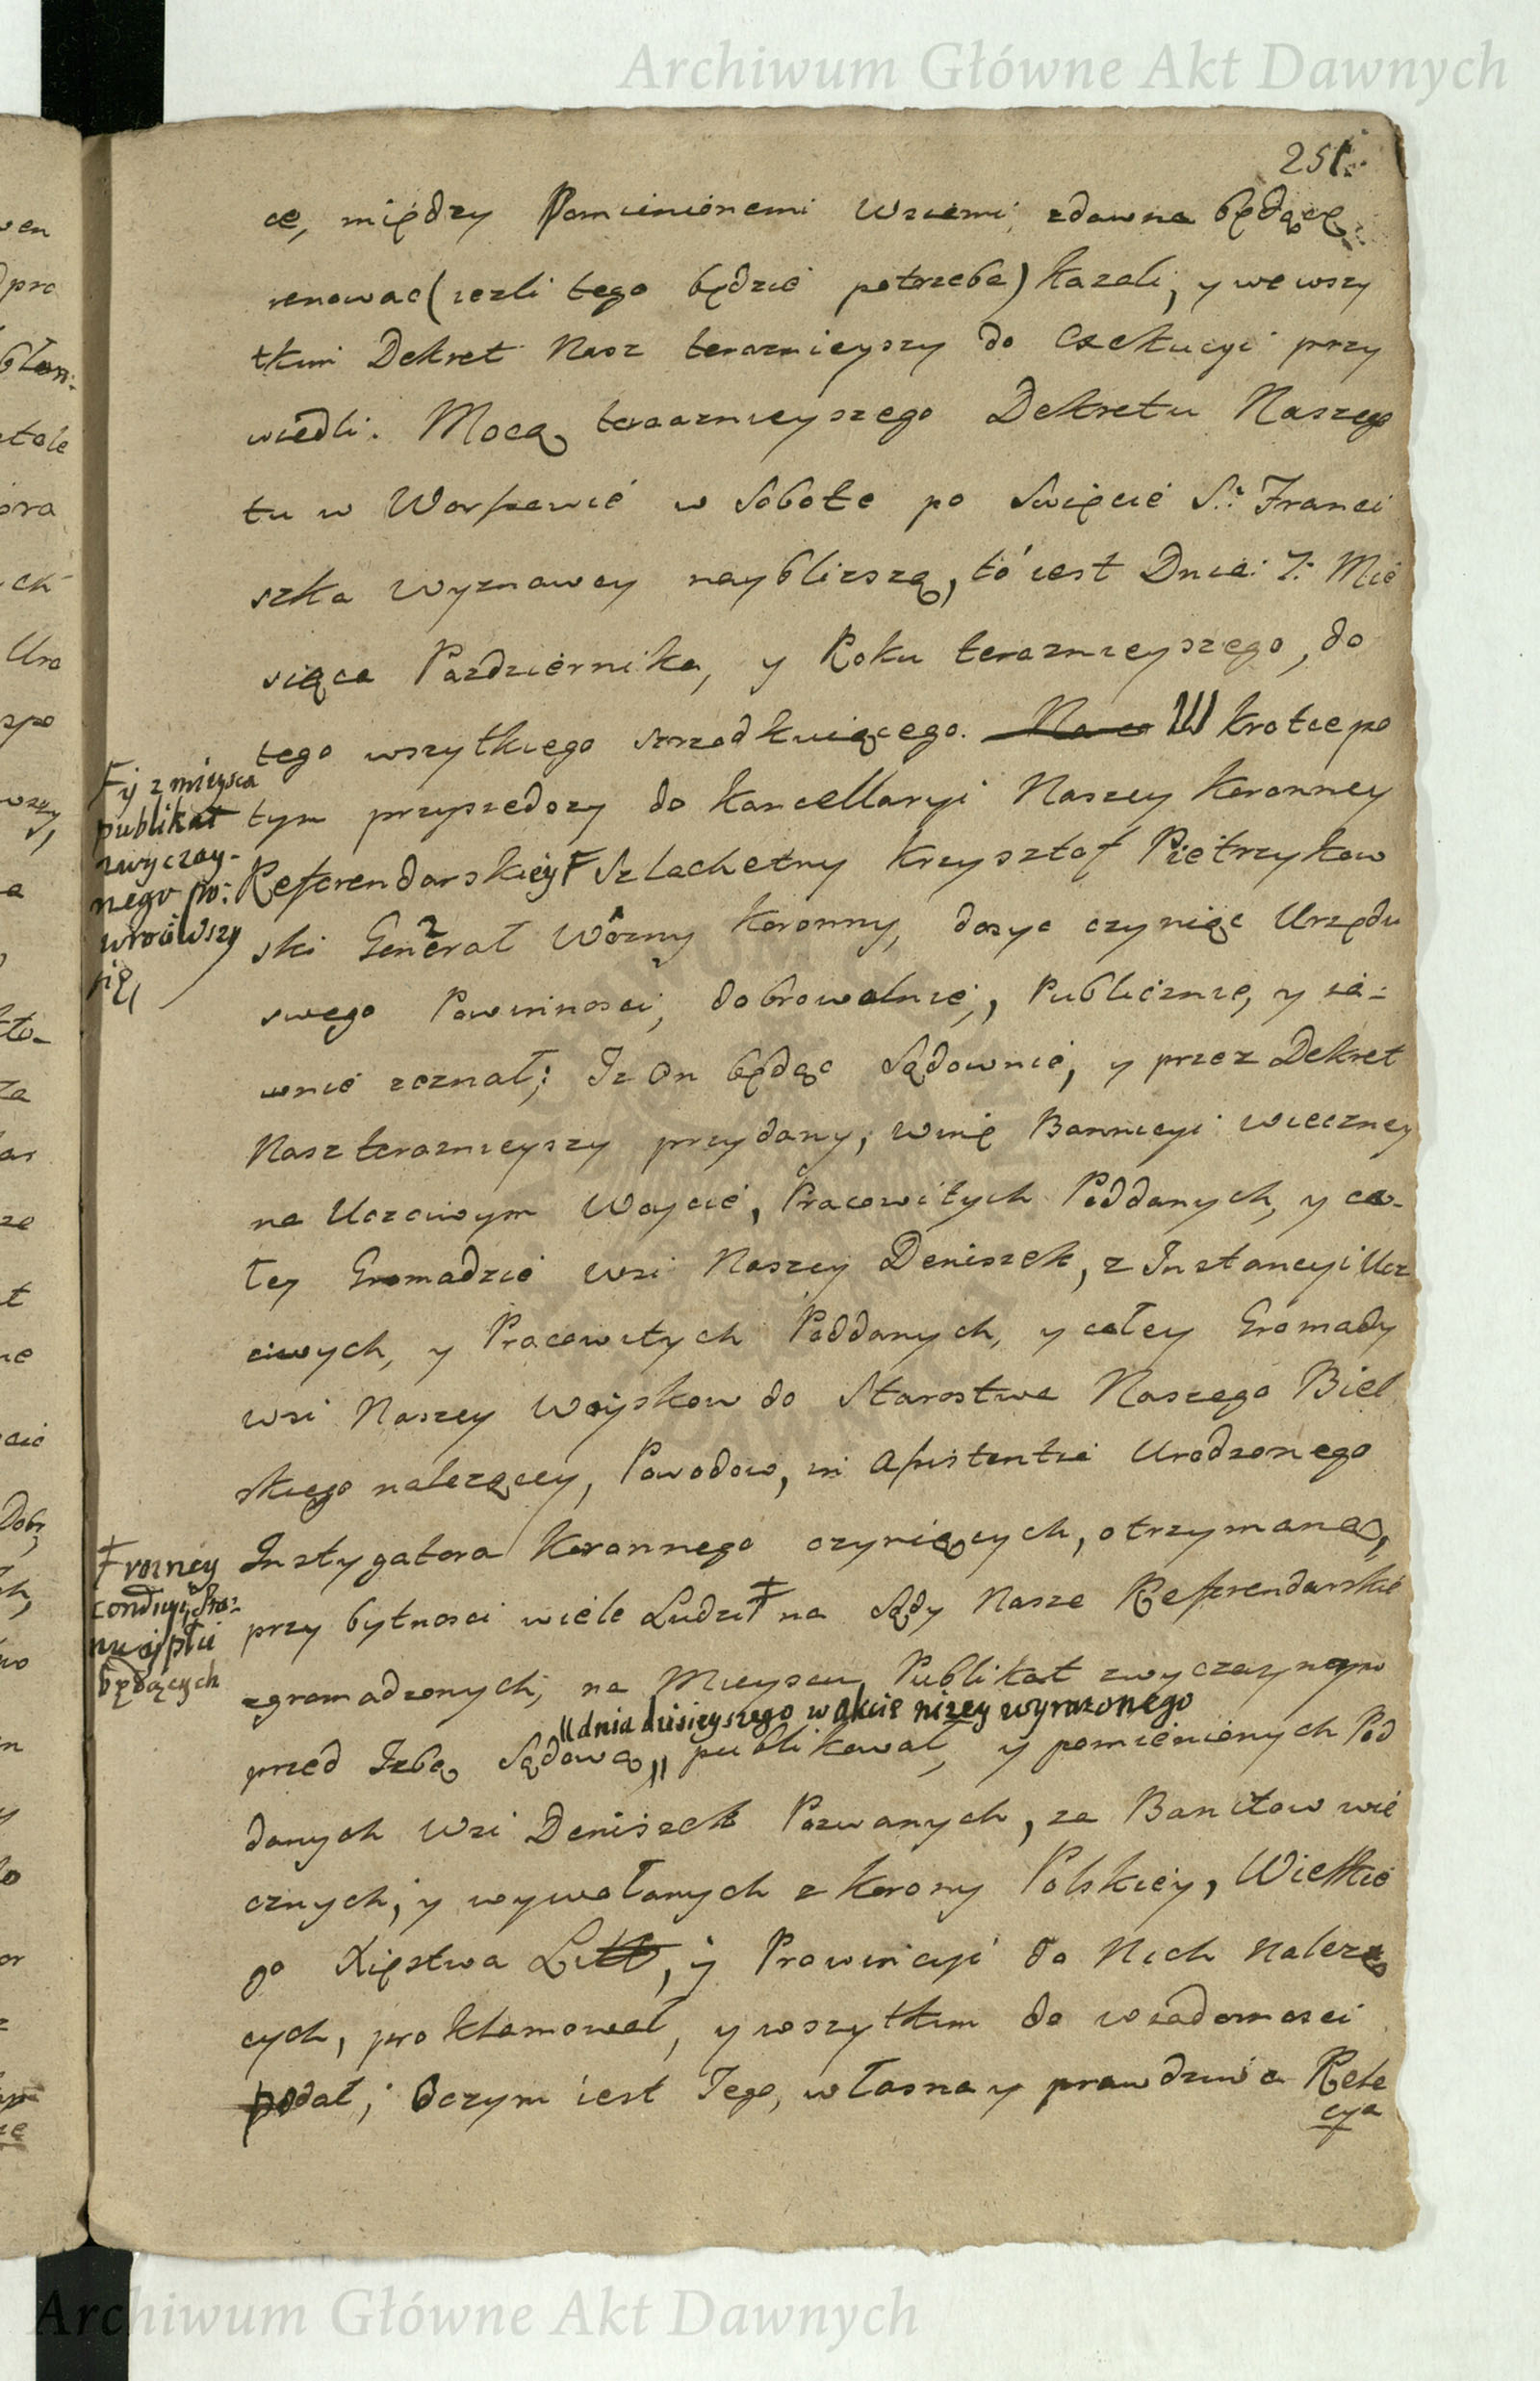 Archiwum Główne Akt Dawnych
251.
ce, między Pomienionemi Wsiemi zdawna będące,
renowac (iezli tego będzie potrzeba) kazali, y we wszy
tkim Dekret Nasz teraznieyszy do Exekucyi przy
wiedli. Mocą teraznieyszego Dekretu Naszego
tu w Warszawie w Sobotę po Swięcie S.: Franci
szka Wyznawcy naybliszszą, tó iest Dnia: 7: Mie
siąca Pazdziernika, y Roku teraznieyszego, do
tego wszytkiego szrzodkuiącego. W krotce po
tym przyszedszy do Kancellaryi Naszey Koronney
Referendarskiey Ŧ Szlachetny Krzysztof Pietrzykow
ski Generał Wózny Koronny, dosyc czyniąc Urzędu
swego Powinnosci, dobrowolnie, Publicznie, y ia-
wnie zeznał; Iz On będąc Sądownie, y przez Dekret
Nasz teraznieyszy przydany, winę Bannicyi wieczney
na Uczciwym Woycie, Pracowitych Poddanych, y ca-
łey Gromadzie wsi Naszey Deniszek, z Instancyi Ucz
ciwych, y Pracowitych Poddanych, y całey Gromady
wsi Naszey Woyskow do Starostwa Naszego Biel
skiego nalezącey, Powodow, in Assistentia Urodzonego
Instygatora Koronnego czyniących, otrzymaną,
przy bytnosci wiele Ludzi Ŧ na Sądy Nasze Referendarskie
zgromadzonych, na Mieyscu Publikat zwyczaynym
|| dnia dzisieyszego w akcie nizey wyrazonego
przed Izbą Sądową || publikował, y pomienionych Pod
danych Wsi Deniszek Pozwanych, za Banitow wie
cznych, y wywołanych z Korony Polskiey, Wielkie
go Xięstwa Litt, y Prowincyi do Nich nalezą
cych, proklamował, y wszytkim do wiadomosci
podał; Oczym iest Iego, własna y prawdziwa Rela
cya
Ŧ y z mieysca
publikat
zwyczay-
nego po:
wrociwszy
się,
Ŧ rozney
condycyi, Sta:
nu y płci
będących
Archiwum Główne Akt Dawnych